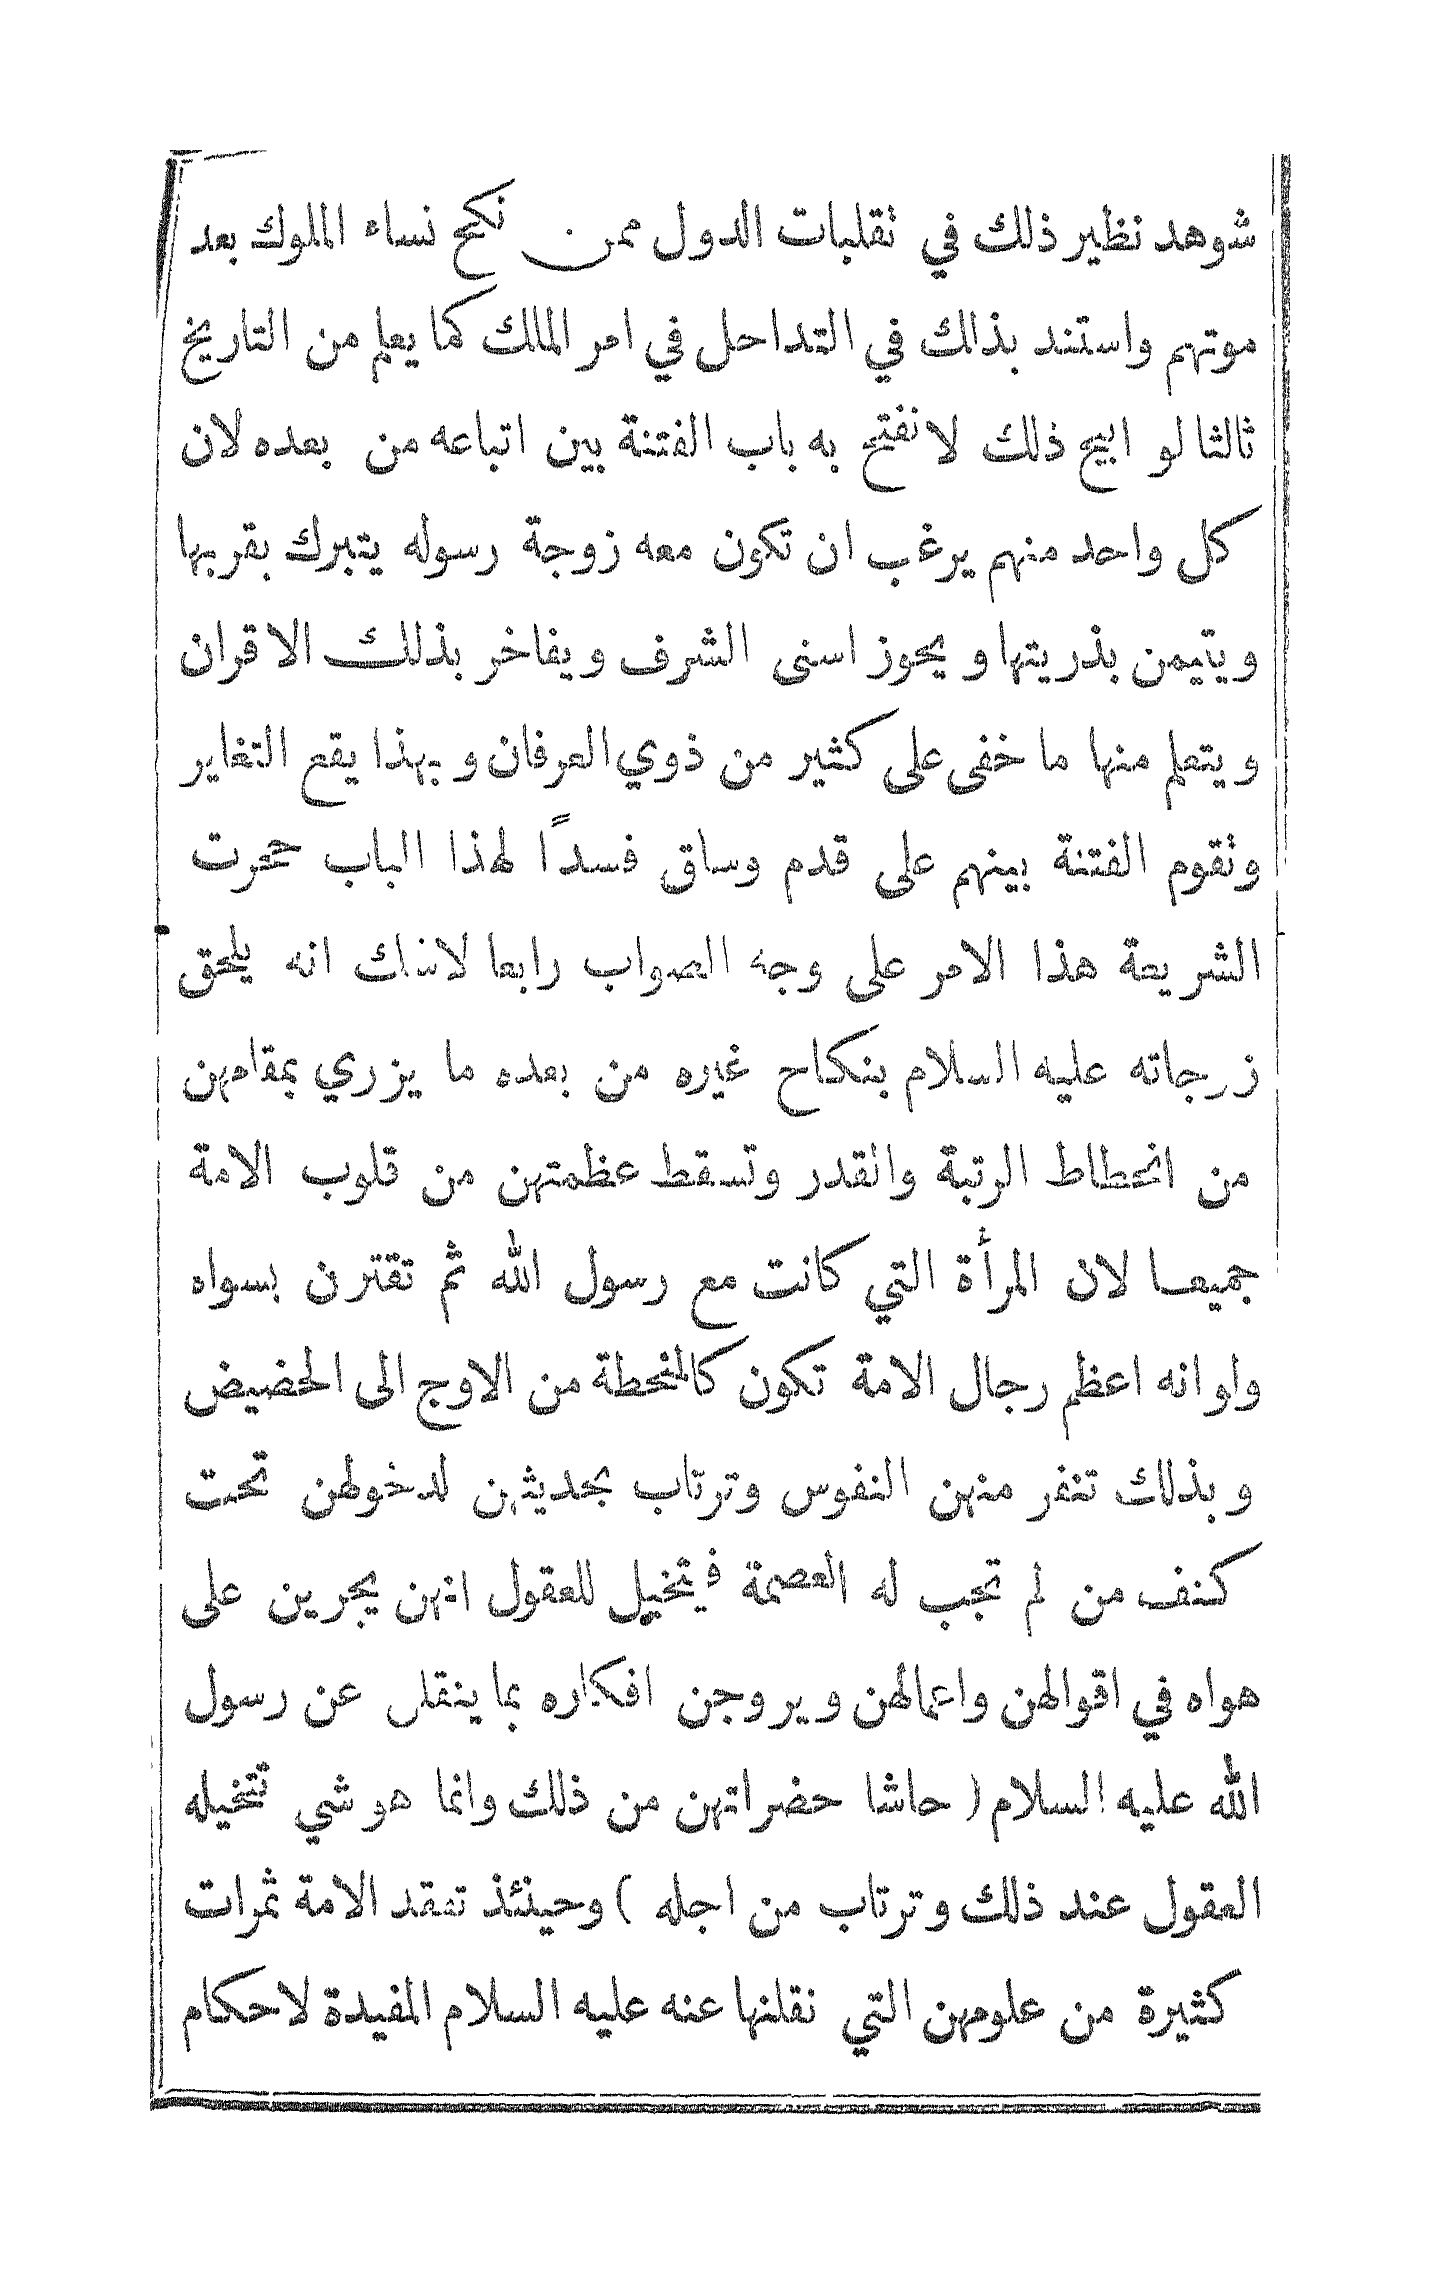 شوهد نظير ذلك في نقلبات الدول ممن نكح نساء الملوك بعد
موتهم واستند بذالك في التداخل في امر المالك كما يعلم من التاريخ
ثالثا لو ابيح ذلك لانفتح به باب الفتنة بين اتباعه من بعده لان
كل واحد منهم يرغب ان تكون معه زوجة رسوله يتبرك بقربها
ويتيمن بذريتها و يحوز اسنى الشرف و يفاخر بذلك الاقران
و يتعلم منها ما خفى على كثير من ذوي العرفان و بهذا يقع التغاير
ونقوم الفتنة بينهم على قدم وساق فسداً لهذا الباب حجرت
الشريعة هذا الامر على وجه الصواب رابعا لاشك انه يلحق
زوجاته عليه السلام بنكاح غيره من بعده ما يزري بمقامهن
من انحطاط الرتبة والقدر وتسقط عظمتهن من قلوب الامة
جميعا لان المرأة التي كانت مع رسول الله ثم تقترن بسواه
ولو انه اعظم رجال الامة تكون كالمنحطة من الاوج الى الحضيض
و بذلك تنفر منهن النفوس وترتاب بحديثهن لدخولهن تحت
كنف من لم تجب له العصمة فيتخيل للعقول انهن يجرين على
هواه في اقوالهن واعمالهن و يروجن افكاره بما ينقلن عن رسول
الله عليه السلام ( حاشا حضراتهن من ذلك وانما هو شي تتخيله
العقول عند ذلك و ترتاب من اجله ) وحينئذ تفقد الامة ثمرات
كثيرة من علومهن التي نقلنها عنه عليه السلام المفيدة لاحكام